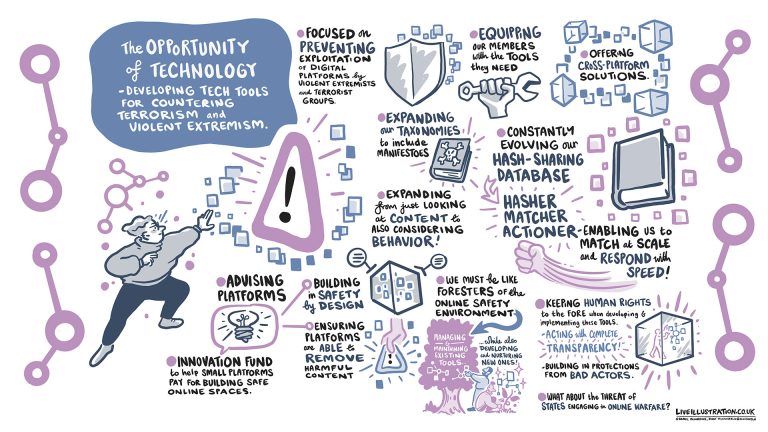 The OPPORTUNITY
of TECHNOLOGY
-DEVELOPING TECH TOOLS
FOR COUNTERING
TERRORISM and
VIOLENT EXTREMISM.
FOCUSED on
PREVENTING
EXPLOITATION
of DIGITAL
PLATFORMS by
VIOLENT EXTREMISTS
and TERRORIST
GROUPS.
EQUIPPING
our MEMBERS
with the TOOLS
they NEED
OFFERING
CROSS-PLATFORM
SOLUTIONS.
EXPANDING
our TAXONOMIES
to include
MANIFESTOES
CONSTANTLY
EVOLVING our
HASH-SHARING
DATABASE
HASHER
MATCHER
ACTIONER
-ENABLING US to
MATCH at SCALE
and RESPOND with
SPEED!
EXPANDING
from just LOOKING
at CONTENT to
ALSO CONSIDERING
BEHAVIOR!
!
ADVISING
PLATFORMS
BUILDING
in SAFETY
by DESIGN
ENSURING
PLATFORMS
are ABLE to
REMOVE
HARMFUL
CONTENT
!
INNOVATION FUND
to help SMALL PLATFORMS
PAY FOR BUILDING SAFE
ONLINE SPACES.
WE MUST BE LIKE
FORESTERS of the
ONLINE SAFETY
ENVIRONMENT
MANAGING
& MAINTAINING
EXISTING
TOOLS
...while also
DEVELOPING
and NURTURING
NEW ONES!
KEEPING HUMAN RIGHTS
to the FORE when developing &
implementing these TOOLS.
-ACTING with COMPLETE
TRANSPARENCY!
-BUILDING IN PROTECTIONS
FROM BAD ACTORS.
WHAT ABOUT the THREAT of
STATES ENGAGING in ONLINE WARFARE?
LIVEILLUSTRATION.CO.UK